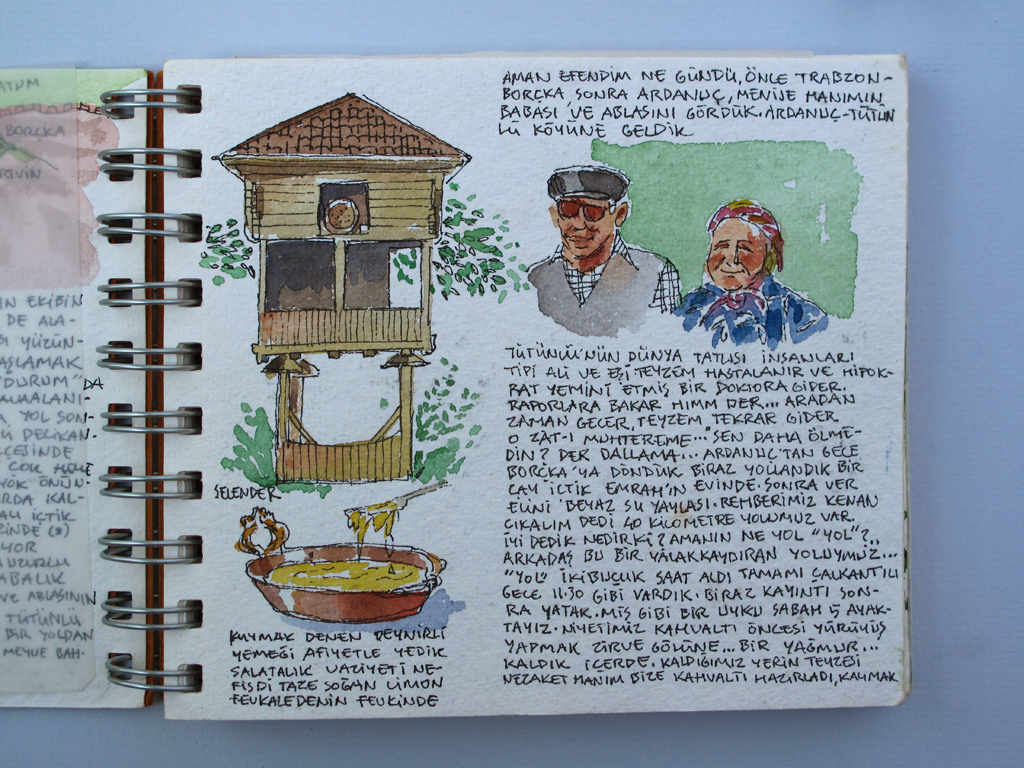 ATUM
BORÇKA
ARTVİN
İN EKİBİN
DE ALA-
BI YÜZÜN-
AŞLAMAK
"DURUM" DA
YOL SON-
DELİKAN-
LÇESİNDE
ÇOK HEME
YÖK ÖNÜN-
ARDA KAL-
ÇAY İÇTİK
RİNDE (*)
IYOR
UZURLU
ABALIK
VE ABLASININ
TÜTÜNLÜ
BİR YOLDAN
MEYVE BAH-
AMAN EFENDİM NE GÜNDÜ, ÖNCE TRABZON-
BORÇKA SONRA ARDANUÇ, MENİJE HANIMIN
BABASI VE ABLASINI GÖRDÜK. ARDANUÇ-TÜTÜN
LÜ KÖYÜNE GELDİK
SELENDER
KUYMAK DENEN PEYNİRLİ
YEMEĞİ AFİYETLE YEDİK
SALATALIK VAZİYETİ NE-
FİSDİ TAZE SOĞAN LİMON
FEVKALEDENİN FEVKİNDE
TÜTÜNLÜ'NÜN DÜNYA TATLISI İNSANLARI
TİPİ ALİ VE EŞİ TEYZEM HASTALANIR VE HİPOK-
RAT YEMİNİ ETMİŞ BİR DOKTORA GİDER.
RAPORLARA BAKAR HIMM DER... ARADAN
ZAMAN GEÇER, TEYZEM TEKRAR GİDER
O ZAT-I MUHTEREME... "SEN DAHA ÖLME-
DİN? DER DALLAMA... ARDANUÇ'TAN GECE
BORÇKA'YA DÖNDÜK BİRAZ YOLLANDIK BİR
ÇAY İÇTİK EMRAH'IN EVİNDE. SONRA VER
ELİNİ BEYAZ SU YAYLASI. REHBERİMİZ KENAN
ÇIKALIM DEDİ 40 KİLOMETRE YOLUMUZ VAR.
İYİ DEDİK NEDİRKİ? AMANIN NE YOL "YOL"?..
ARKADAŞ BU BİR YALAKKAYDIRAN YOLUYMUZ...
"YOL" İKİBUÇUK SAAT ALDI TAMAMI ÇALKANTILI
GECE 11.30 GİBİ VARDIK. BİRAZ KAYINTI SON-
RA YATAK. MİŞ GİBİ BİR UYKU SABAH 5 AYAK-
TAYIZ. NİYETİMİZ KAHVALTI ÖNCESİ YÜRÜYÜŞ
YAPMAK ZİRVE GÖLÜNE... BİR YAĞMUR...
KALDIK İÇERDE. KALDIĞIMIZ YERİN TEYZESİ
NEZAKET HANIM BİZE KAHVALTI HAZIRLADI, KAYMAK